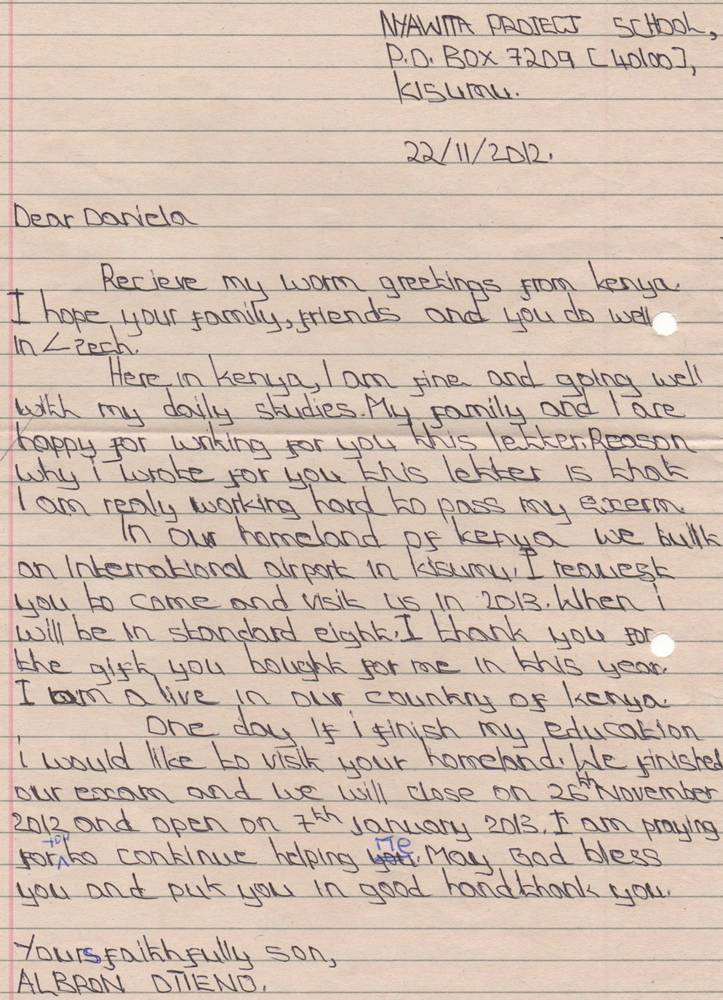 NYAWITA PROJECT SCHOOL,
P.O. BOX 7209 [40100],
KISUMU.
22/11/2012.
Dear Daniela
Recieve my warm greetings from kenya.
I hope your family, friends and you do well
in Czech.
Here in kenya, I am fine and going well
with my daily studies. My family and I are
happy for writing for you this letter. Reason
why i wrote for you this letter is that
I am realy working hard to pass my exerm.
In our homeland of kenya we built
an International airport in kisumu. I request
you to come and visit us in 2013. When i
will be in standard eight. I thank you for
the gift you bought for me in this year.
I am a live in our country of kenya.
One day If i finish my education
i would like to visit your homeland. We finished
our exam and we will close on 26th November
2012 and open on 7th January 2013. I am praying
for you to continue helping you. Me May God bless
you and put you in good hand thank you.
Yours faithfully son,
ALBRON OTIENO.